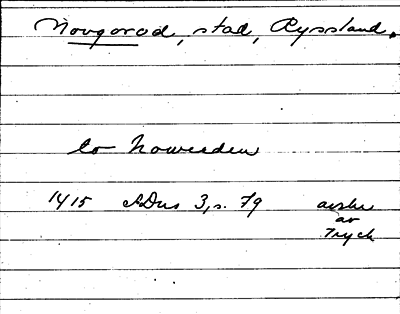 Novgorod, stad, Ryssland.
to Nowerden
1415 ADns 3, s. 79 avskr
av
Tryck